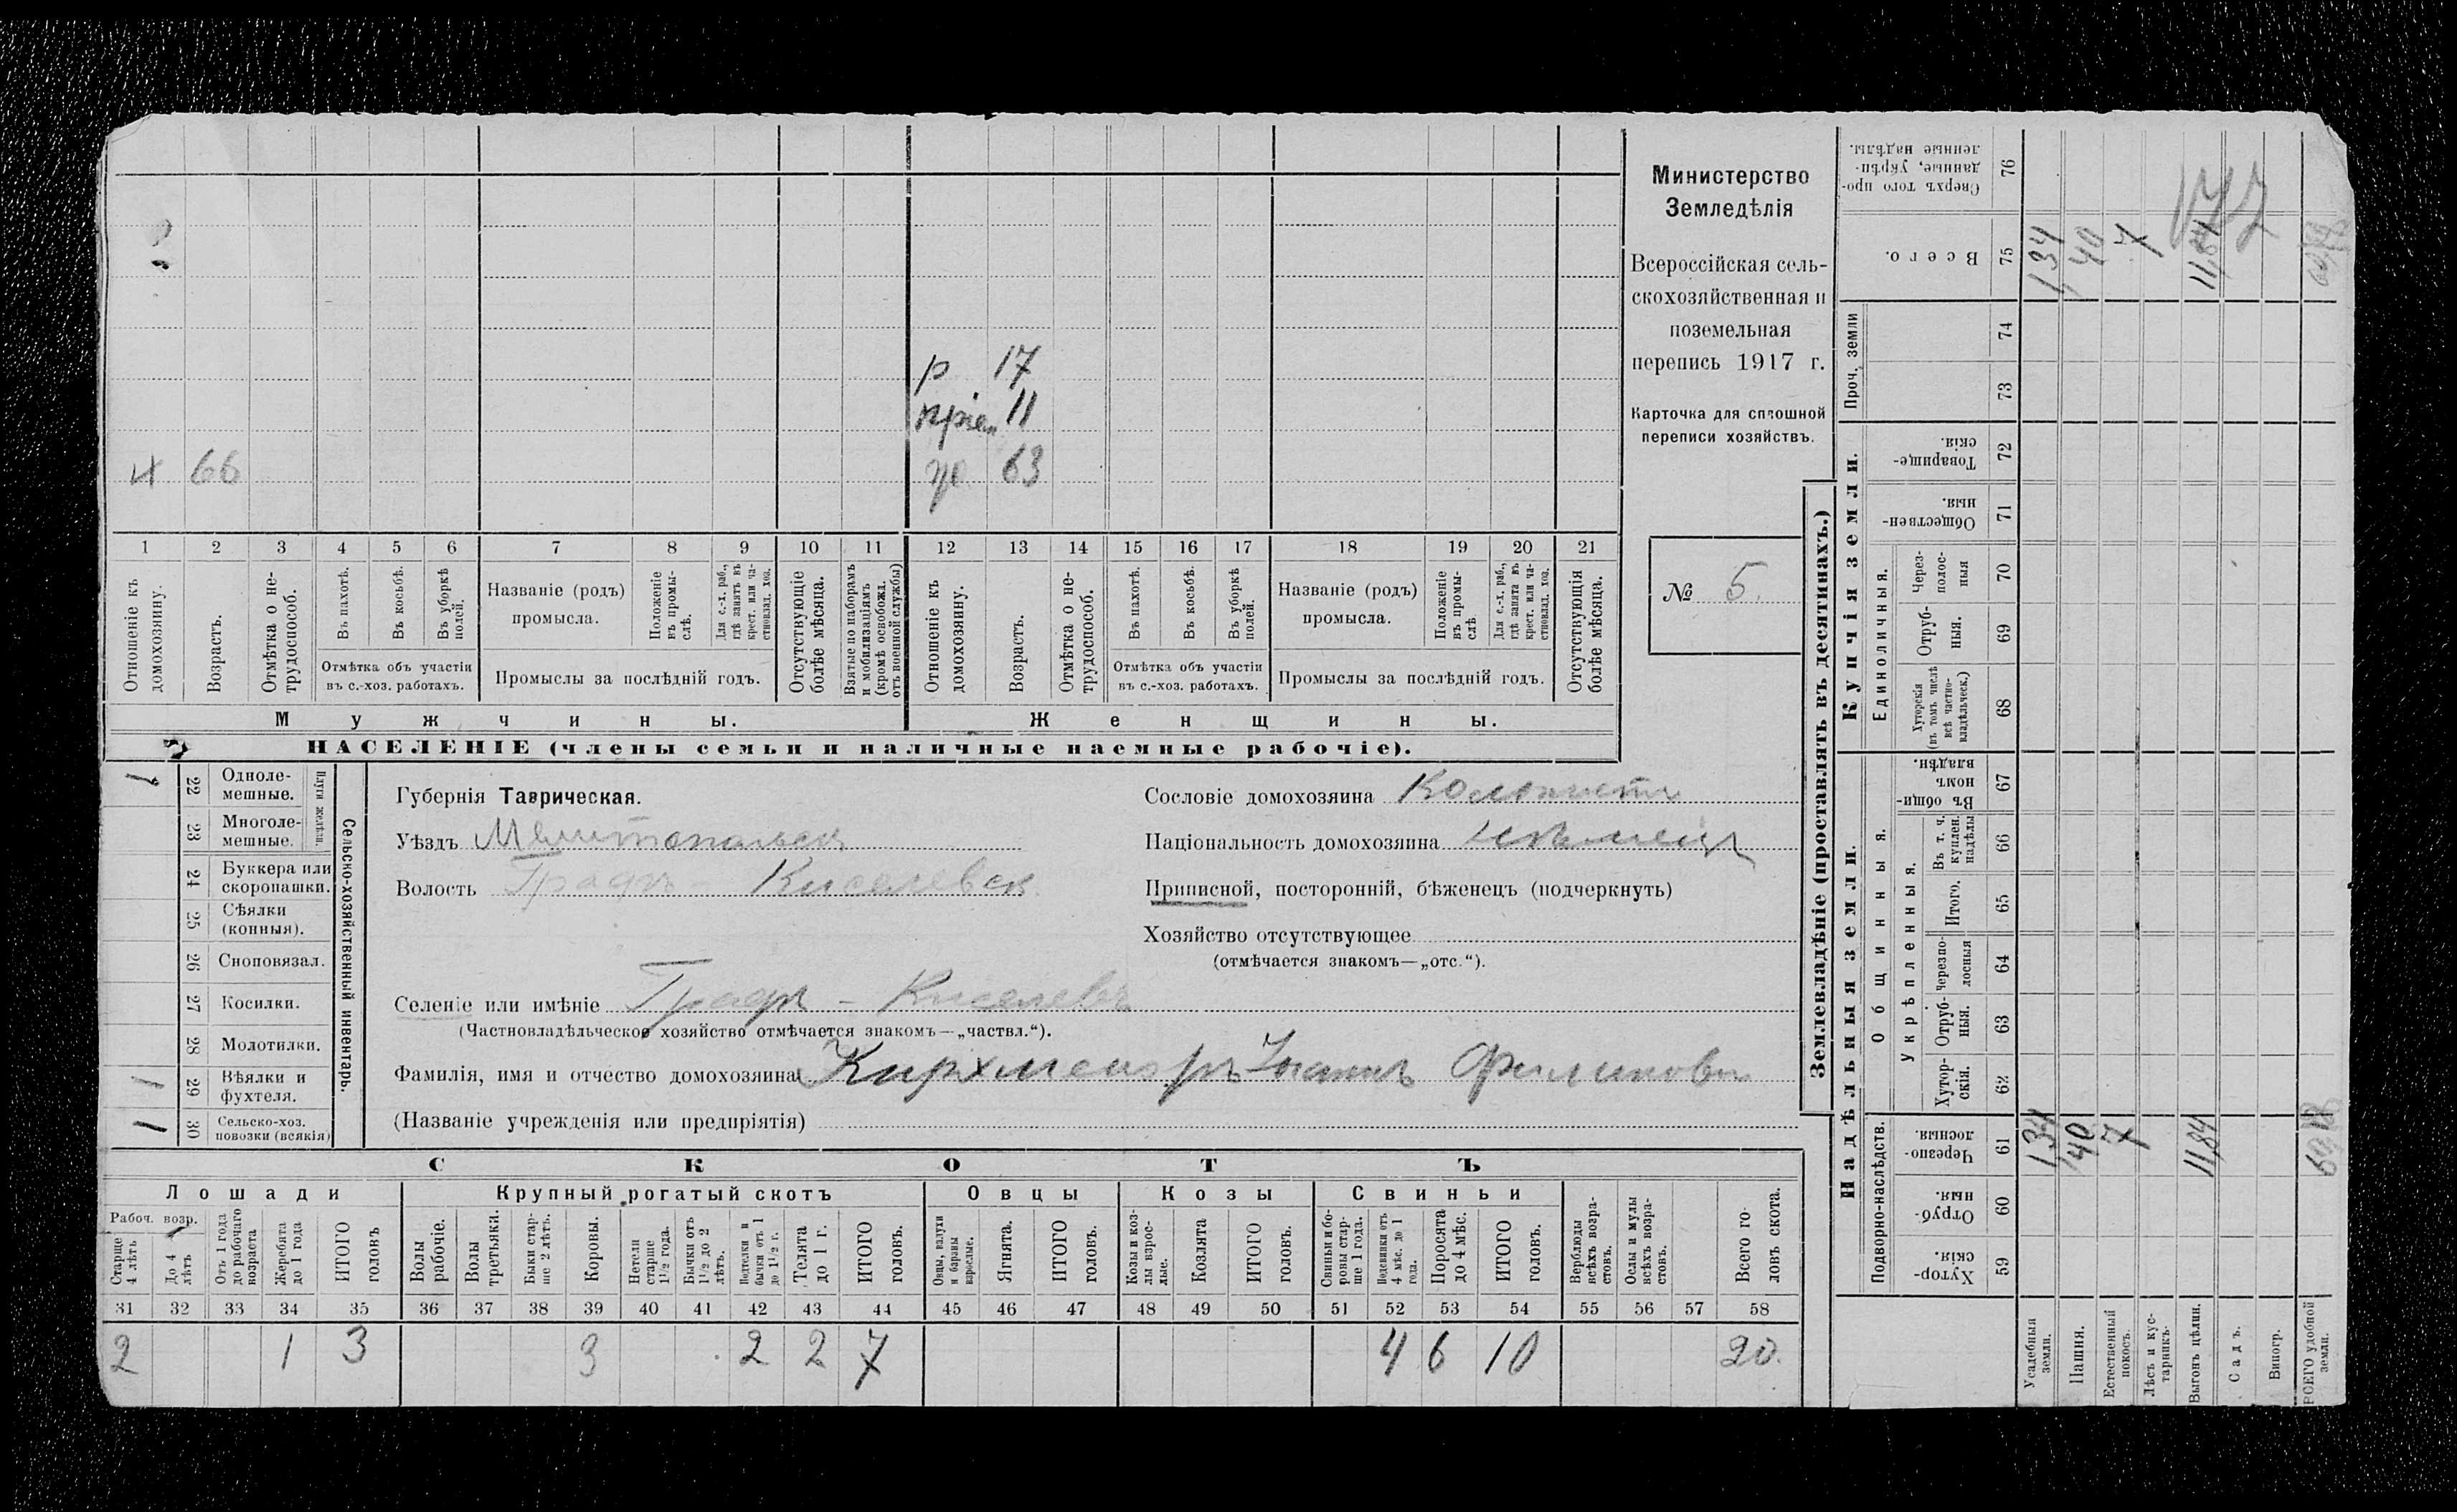 р 17
пріем 11
х 66
жо. 63
1 2 3 4 5 6 7 8 9 10 11 12 13 14 15 16 17 18 19 20 21
Отношеніе къ домохозяину.
Возрастъ.
Отмѣтка о не-трудоспособ.
Въ пахотѣ.
Въ косьбѣ.
Въ уборкѣ полой.
Отмѣтка объ участіи
въ с.-хоз. работахъ.
Названіе (родъ)
промысла.
Положеніе въ промы-слѣ.
Для с.-х. раб., гдѣ занятъ въ крест. или ча-стновлад. хоз.
Промыслы за послѣдній годъ.
Отсутствующіе болѣе мѣсяца.
Взятые по наборамъ и мобилизаціямъ (кромѣ освобожд. отъ военной службы)
Отношеніе къ домохозяину.
Возрастъ.
Отмѣтка о не-трудоспособ.
Въ пахотѣ.
Въ косьбѣ.
Въ уборкѣ полой.
Отмѣтка объ участіи
въ с.-хоз. работахъ.
Названіе (родъ)
промысла.
Положеніе въ промы-слѣ
Для с.-х. раб., гдѣ занята въ крест. или ча-стновлад. хоз.
Промыслы за послѣдній годъ.
Отсутствующія болѣе мѣсяца.
Мужчины.
Женщины.
НАСЕЛЕНІЕ (члены семьи и наличные наемные рабочіе).
Министерство
Земледѣлія
Всероссійская сель-
скохозяйственная и
поземельная
перепись 1917 г.
Карточка для сплошной
переписи хозяйствъ.
№ 5.
Сельско-хозяйственный инвентарь.
Плуги желѣзн.
1 22 Одноле-мешные.
23 Многоле-мешные.
24 Буккера или скоропашки.
25 Сѣялки (конныя).
26 Сноповязал.
27 Косилки.
28 Молотилки.
1 29 Вѣялки и фухтеля.
1 30 Сельско-хоз. повозки (всякія)
Губернія Таврическая.
Уѣздъ Мелитопольск
Волость Градъ - Киселевск
Селеніе или имѣніе Градъ - Киселевъ
(Частновладѣльческое хозяйство отмѣчается знакомъ—„частвл.“).
Фамилія, имя и отчество домохозяина Кирхмейеръ Іоганъ Филиповъ
(Названіе учрежденія или предпріятія)
Сословіе домохозяина Колонистъ
Національность домохозяина нѣмецъ
Приписной, посторонній, бѣженецъ (подчеркнуть)
Хозяйство отсутствующее
(отмѣчается знакомъ—„отс.“).
СКОТЪ
Лошади
Крупный рогатый скотъ
Овцы
Козы
Свиньи
Рабоч. возр.
Старще 4 лѣтъ
До 4 лѣтъ
Отъ 1 года до рабочаго возраста
Жеребята до 1 года
ИТОГО головъ
Волы рабочіе.
Волы третьяки.
Быки стар-ше 2 лѣтъ.
Коровы.
Нетели старше 1 1/2 года.
Бычки отъ 1 1/2 до 2 лѣтъ.
Подтелки и бычки отъ 1 до 1 1/2 г.
Телята до 1 г.
ИТОГО головъ.
Овцы, валухи и бараны взрослые.
Ягнята.
ИТОГО головъ.
Козы и коз-лы взрос-лые.
Козлята
ИТОГО головъ.
Свиньи и бо-ровы стар-ше 1 года.
Подсвинки отъ 4 мѣс. до 1 года.
Поросята до 4 мѣс.
ИТОГО головъ.
Верблюды всѣхъ возра-стовъ.
Ослы и мулы всѣхъ возра-стовъ.
Всего го-ловъ скота.
31 32 33 34 35 36 37 38 39 40 41 42 43 44 45 46 47 48 49 50 51 52 53 54 55 56 57 58
2 1 3 3 2 2 7 4 6 10 20.
Землевладѣніе (проставлять въ десятинахъ.)
Надѣльныя земли.
Купчія земли.
Проч. земли
Подворно-наслѣдств.
Общинныя.
Укрѣпленныя.
Единоличныя.
Сверхъ того про-данные, укрѣп-ленные надѣлы. 76
Всего. 75 1,34 40 7 11,84
74
73
Товарище-скія. 72
Обществен-ныя. 71
Через-полос-ныя 70
Отруб-ныя. 69
Хуторскія (въ томъ числѣ всѣ частно-владѣльческ.) 68
Въ общи-номъ владѣн. 67
Въ т. ч. куплен. надѣлы 66
Итого. 65
черезпо-лосныя 64
Отруб-ныя. 63
Хутор-скія. 62
Черезпо-лосныя. 61 1,34 40 7 11,84
Отруб-ныя. 60
Хутор-скія. 59
Усадебныя земли.
Пашня.
Естественный покосъ.
Лѣсъ и кус-тарникъ.
Выгонъ цѣлин.
Садъ.
Виногр.
ВСЕГО удобной земли.